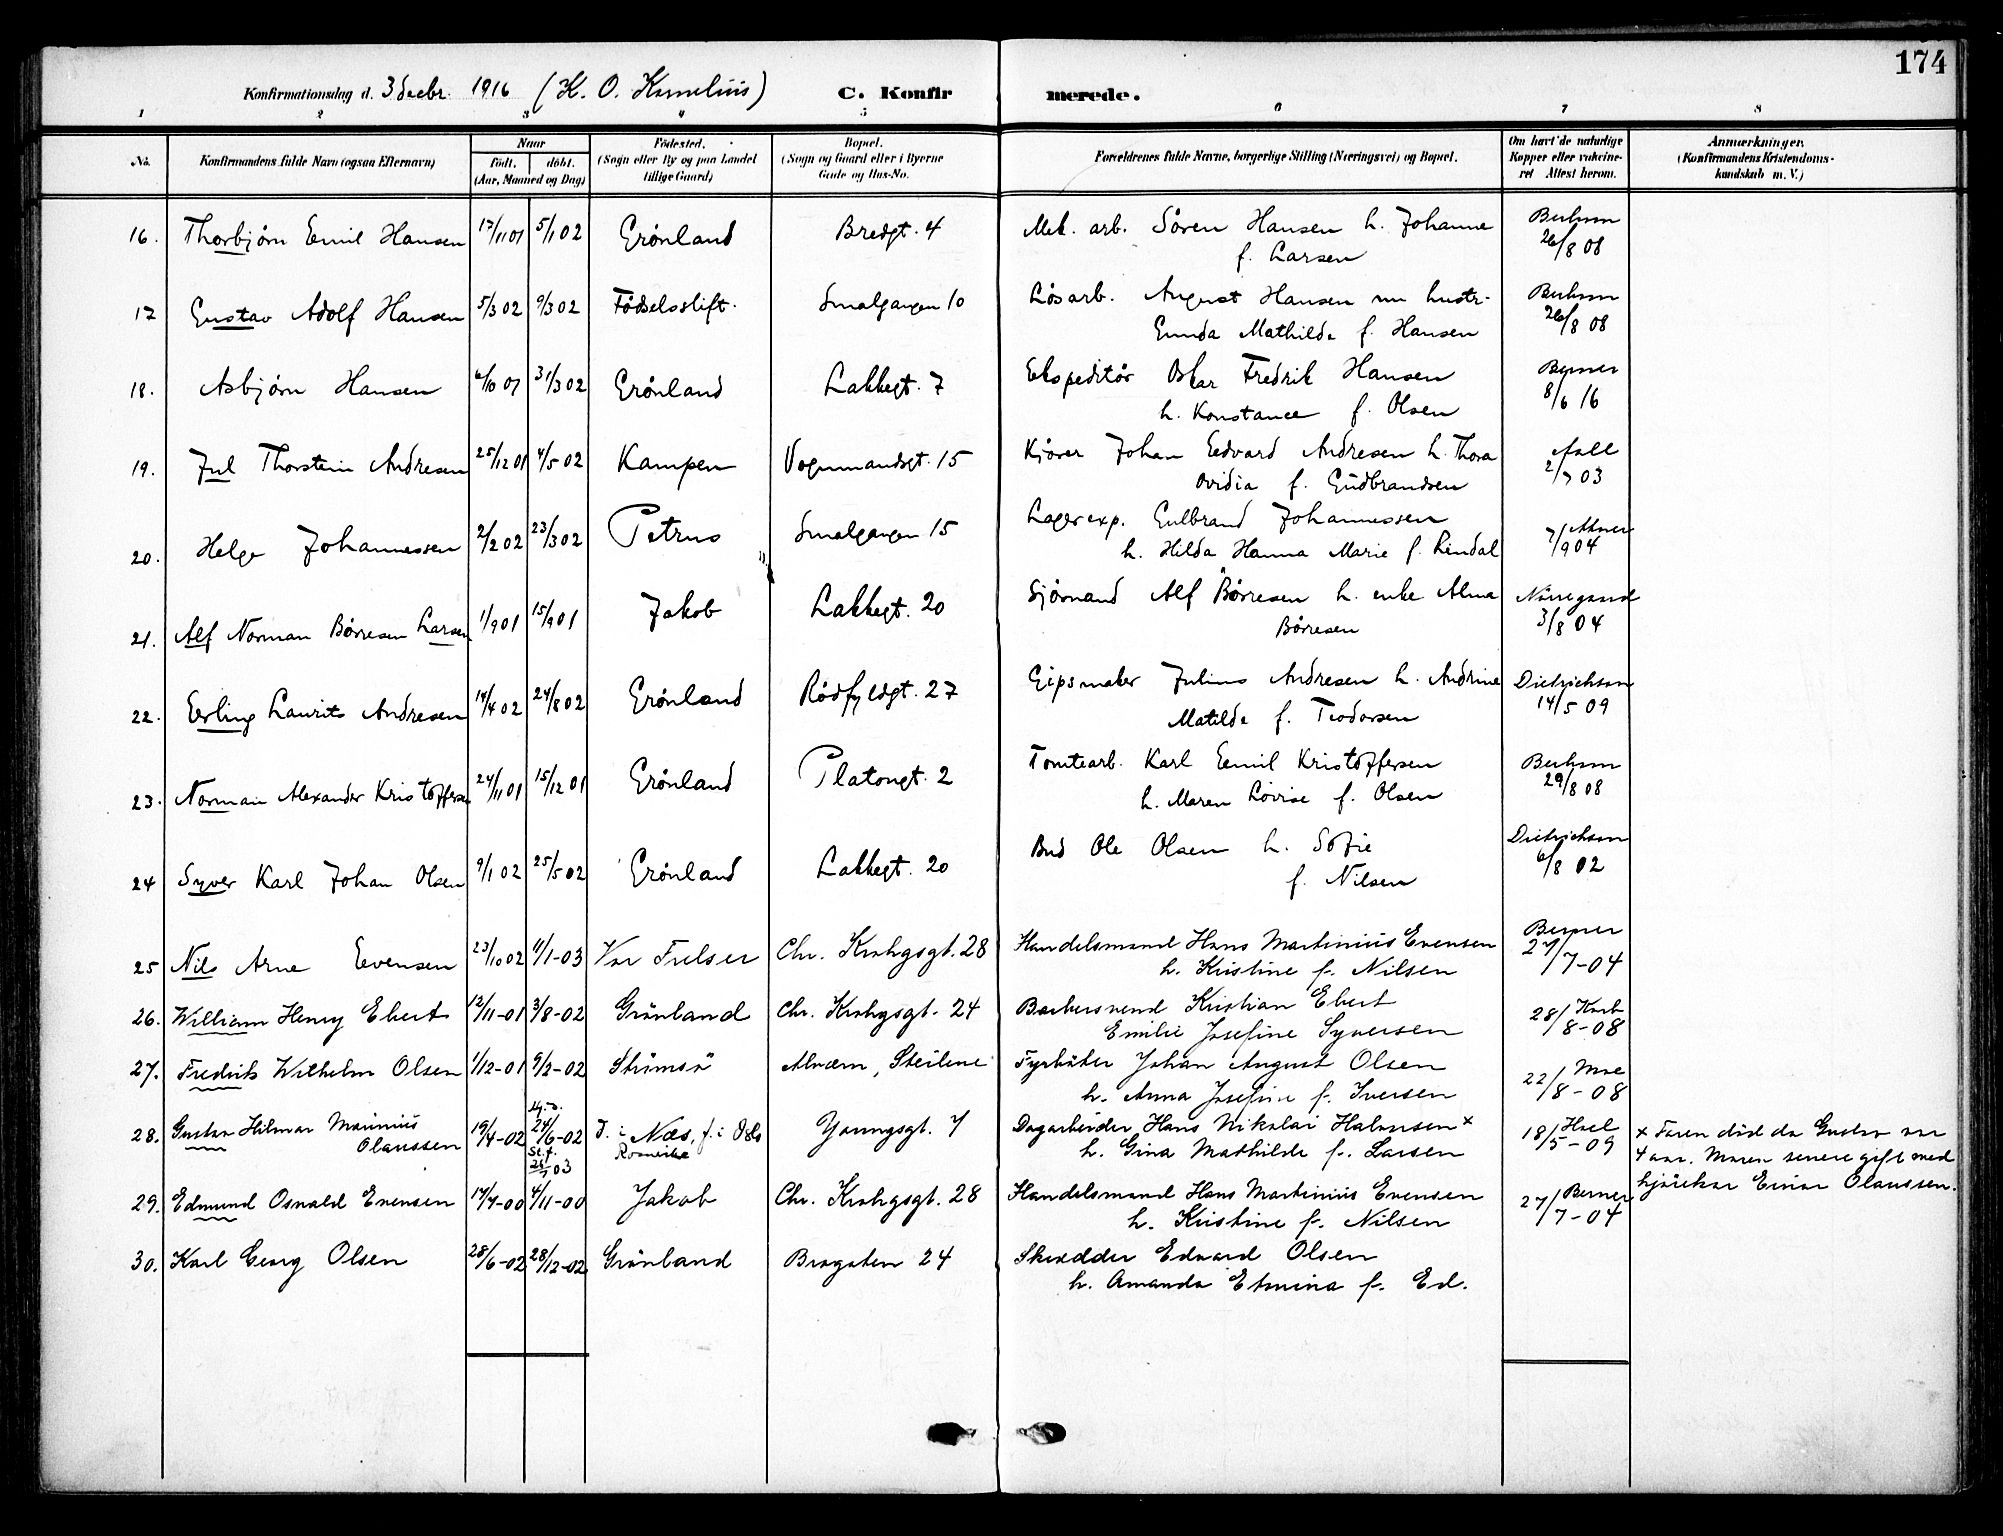 174
Konfirmationsdag d. 3 decbr. 1916 (K. O. Kornelius) C. Konfirmerede.
1 2 3 4 5 6 7 8
No. Konfirmandens fulde Navn (ogsaa Efternavn) Naar født. døbt. (Aar, Maaned og Dag) Fødested. (Sogn eller By og paa Landet tillige Gaard) Bopæl. (Sogn og Gaard eller i Byerne Gade og Hus-No. Forældrenes fulde Navne, borgerlige Stilling (Næringsvei) og Bopæl. Om havt de naturlige Kopper eller vaccineret Attest herom. Anmærkninger. (Konfirmandens Kristendomskundskab m. V.)
16. Thorbjørn Emil Hansen 17/11 01 5/1 02 Grønland Bredgt. 4 Mek. arb. Søren Hansen h. Johanne
f. Larsen 26/8 08
17 Gustav Adolf Hansen 5/3 02 9/3 02 Fødselsstift. Smalgangen 10 Løsarb. August Hansen nu hustr.
Gunda Mathilde f. Hansen 26/8 08
18. Asbjørn Hansen 6/10 01 31/3 02 Grønland Lakkegt. 7 Ekspeditør Oskar Fredrik Hansen Berner
h. Konstance f. Olsen 8/6 16
19. Jul Thorstein Andresen 25/12 01 4/5 02 Kampen Vognmandsgt. 15 Kjører Johan Edvard Andresen h. Thora Aall
Ovidia f. Gudbrandsen 2/7 03
20. Helge Johannessen 2/2 02 23/3 02 Petrus Smalgangen 15 Lagerexp. Gulbrand Johannessen
h. Hilda Hanna Marie f. Lindal 7/9 04
21. Alf Norman Børresen Larsen 1/9 01 15/9 01 Jakob Lakkegt. 20 Sjømand Alf Børresen h. enke Alma Nørregaard
Børresen 3/8 04
22. Erling Laurits Andresen 14/4 02 24/8 02 Grønland Rødfyldgt. 27 Gipsmaker Julius Andresen h. Andrine Dietrichson
Matilde f. Teodorsen 14/5 09
23. Norman Alexander Kristoffersen 24/11 01 15/12 01 Grønland Platougt. 2 Tomtearb. Karl Emil Kristoffersen
h. Maren Lovise f. Olsen 29/8 08
24 Syver Karl Johan Olsen 9/1 02 25/5 02 Grønland Lakkegt. 20 Bud Ole Olsen h. Sofie Dietrichson
f. Nilsen 6/8 02
25 Nils Arne Evensen 23/10 02 4/1-03 Vor Frelser Chr. Krohgsgt. 28 Handelsmand Hans Martinius Evensen Berner
h. Kristine f. Nilsen 27/7-04
26. William Henry Ebert 12/11-01 3/8-02 Grønland Chr. Krohgsgt. 24 Barbersvend Kristian Ebert
Emilie Josefine Syversen 28/8-08
27. Fredrik Wilhelm Olsen 1/12-01 9/2-02 Strømsø Alværn, Steilene Fyrbøter Johan August Olsen Moe
h. Anna Josefine f. Iversen 22/8-08
28. Gustav Hilmar Marinius Olaussen 19/4-02 24/6-02 St. f. 26/7 03 D. i Næs, f. i Oslo Youngsgt. 7 Dagarbeider Hans Nikolai Halvorsen x 18/5-09 x Faren död da Gustav var
h. Gina Mathilde f. Larsen 4 aar. Moren senere gift med
kjørekar Einar Olaussen.
29. Edmund Osvald Evensen 17/7-00 4/11-00 Jakob Chr. Krohgsgt. 28 Handelsmand Hans Martinius Evensen Berner
h. Kristine f. Nilsen 27/7-04
30. Karl Georg Olsen 28/6-02 28/12-02 Grønland Brogaten 24 Skrædder Edvard Olsen
h. Amanda Elmina f. Ed.